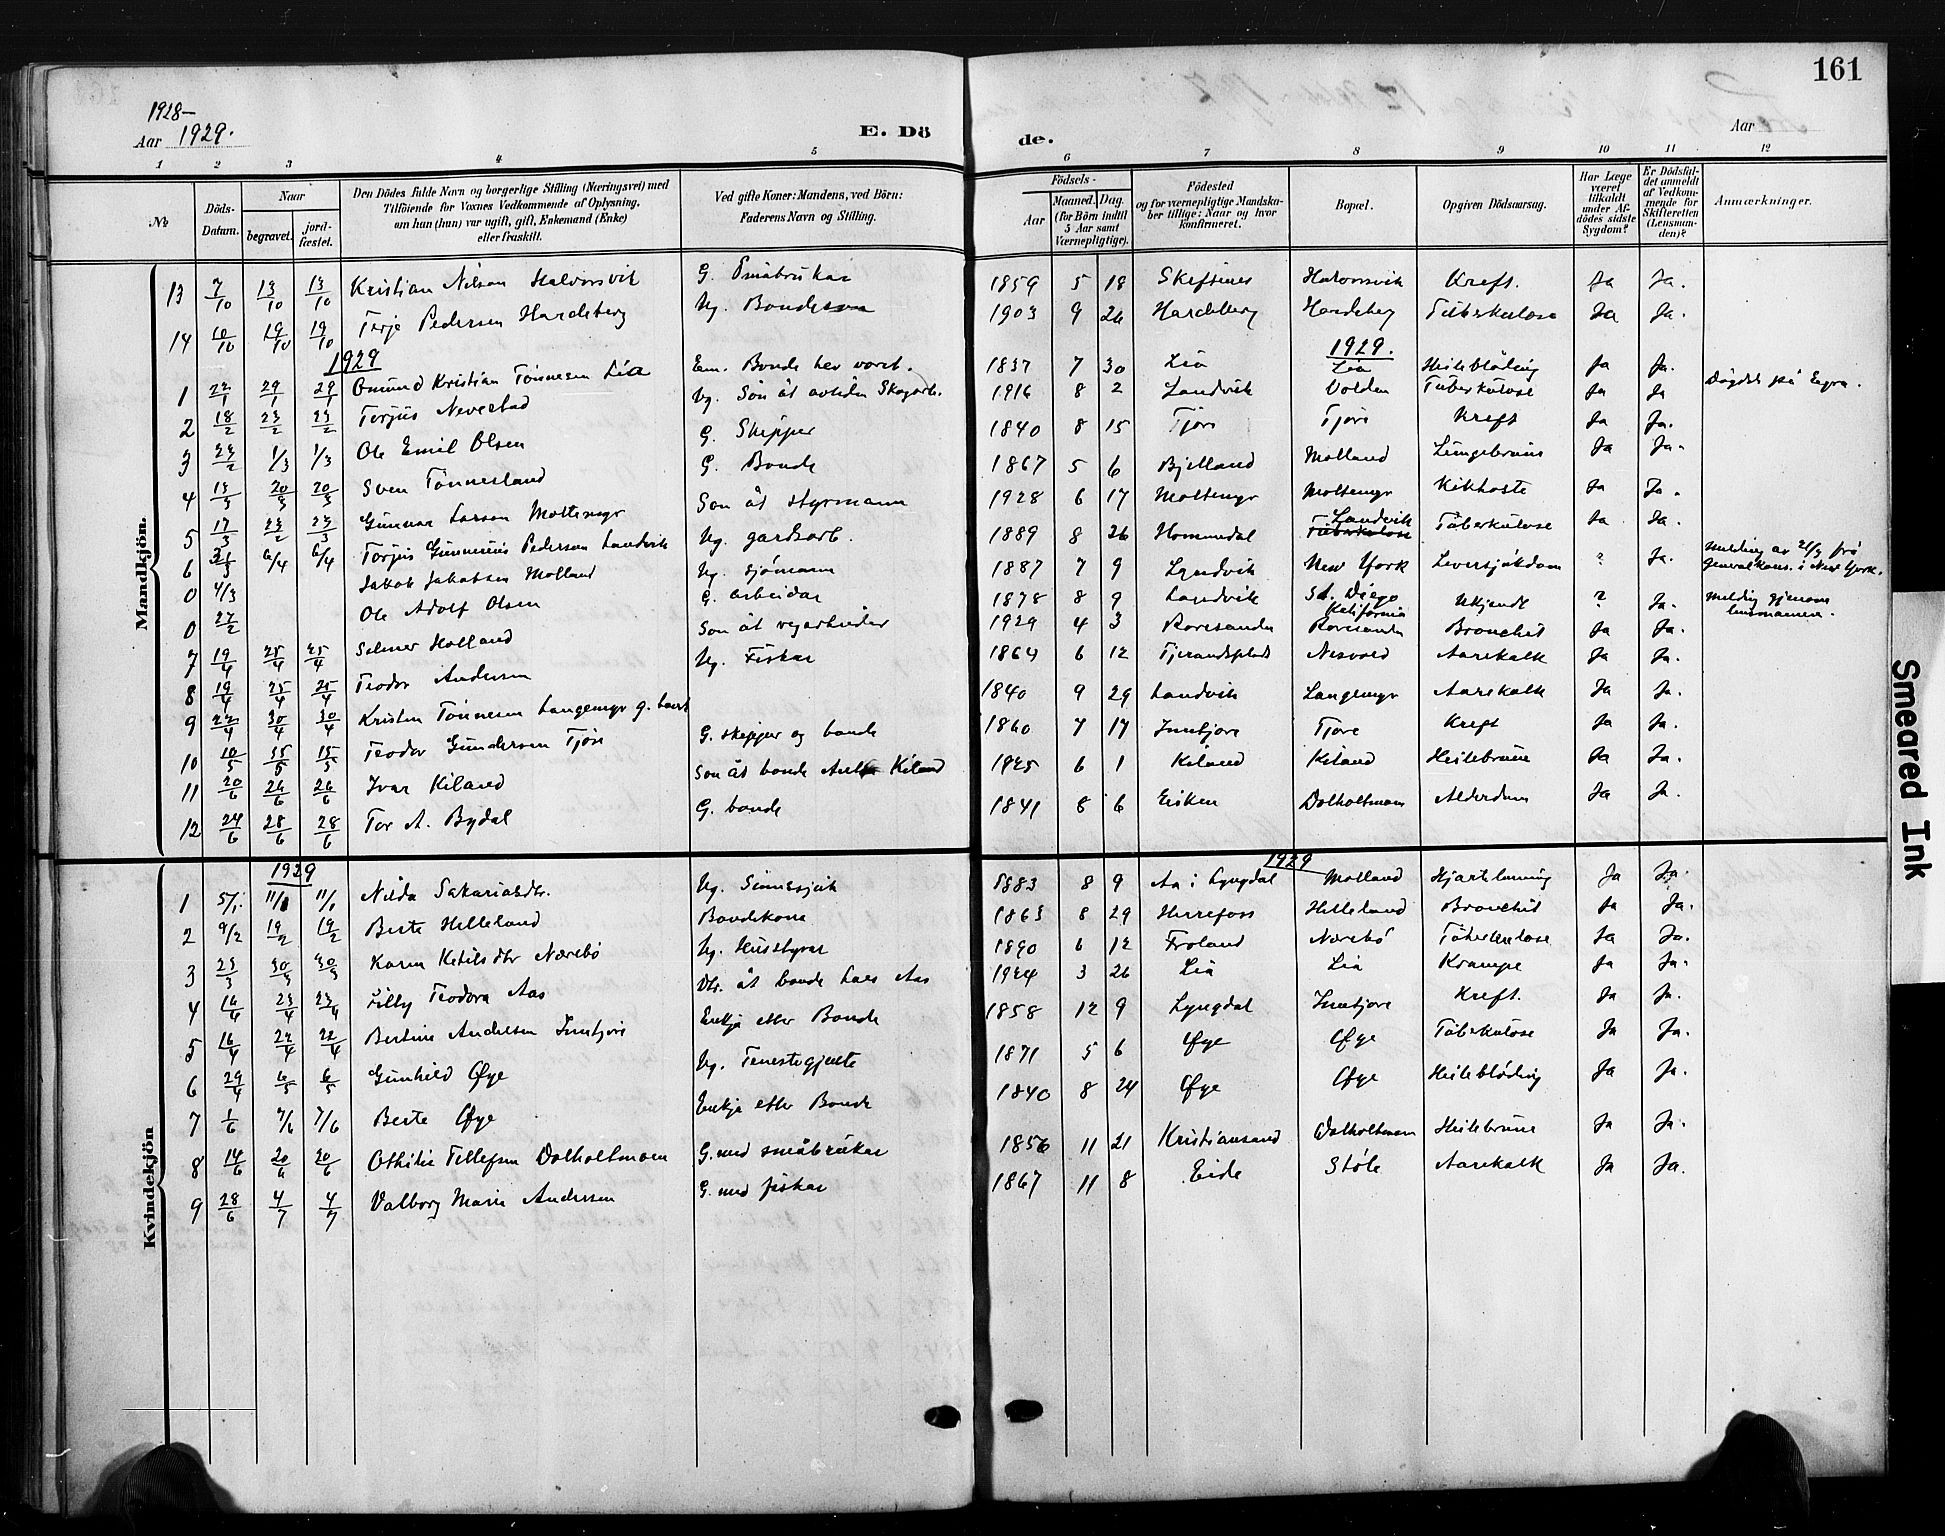 161
1928–
Aar 1929.
E. Dö
de.
Aar
1 2 3 4 5 6 7 8 9 10 11 12
№
Döds-Datum.
Naar
begravet.
jord-fæstet.
Den Dödes fulde Navn og borgerlige Stilling (Næringsvei) med
Tilföiende for Voxnes Vedkommende af Oplysning,
om han (hun) var ugift, gift, Enkemand (Enke)
eller fraskilt.
Ved gifte Koner: Mandens, ved Börn:
Faderens Navn og Stilling.
Födsels-
Aar
Maaned. Dag.
(for Börn indtil
5 Aar samt
Værnepligtige).
Födested
og for værnepligtige Mandska-
ber tillige: Naar og hvor
konfirmeret.
Bopæl.
Opgiven Dödsaarsag.
Har Læge
været
tilkaldt
under Af-
dödes sidste
Sygdom?
Er Dödsfal-
det anmeldt
af Vedkom-
mende for
Skifteretten
(Lensman-
den)?
Anmærkninger.
Mandkjön.
13 7/10 13/10 13/10 Kristian Nilsen Halvorsvik G. Småbrukar 1859 5 18 Skeftenes Halvorsvik Kreft. Ja Ja.
14 10/10 19/10 19/10 Terje Pedersen Hardeberg Ug. Bondeson 1903 9 26 Hardeberg Hardeberg Tüberkulose Ja Ja.
1929
1929.
1 22/1 29/1 29/1 Omund Kristian Tønnesen Lia Em. Bonde hev voret. 1837 7 30 Lia Lia Heilebløding Ja Ja.
2 18/2 23/2 23/2 Terjus Nevestad Ug. Son åt avliden Skogarb. 1916 8 2 Landvik Volden Tüberkulose Ja Ja Døydde på Eyra.
3 23/2 1/3 1/3 Ole Emil Olsen G. Skipper 1840 8 15 Tjore Tjore Kreft Ja Ja.
4 13/3 20/3 20/3 Sven Tønnesland G. Bonde 1867 5 6 Bjelland Molland Lungebrune Ja Ja.
5 17/3 23/2 23/3 Gunnar Larsen Moltemyr Son åt styrmann 1928 6 17 Moltemyr Moltemyr Kikhoste Ja Ja.
6 31/3 6/4 6/4 Torjus Gunnerius Pedersen Landvik Ug. gardsarb. 1889 8 26 Hommedal Tüberkulose Landvik Tüberkulose Ja Ja.
0 4/3 Jakob Jakobsen Molland Ug. Sjømann 1887 7 9 Landvik New York Leversjukdom ? Ja. Melding av 21/3 frå
generalkons. i New York.
0 27/2 Ole Adolf Olsen G. arbeidar 1878 8 9 Landvik St. Diego
Kalifornia Ukjendt ? Ja. Melding gjenom
lensmannen.
7 19/4 25/4 25/4 Selmer Holland Son åt vegarbeider 1929 4 3 Roresanden Roresanden Bronchit Ja Ja.
8 19/4 25/4 25/4 Teodor Andersen Ug. Fiskar 1864 6 12 Tjerandsplads Nesvold Aarekalk Ja Ja.
9 22/4 30/4 30/4 Kristen Tønnesen Langemyr g. 1840 9 29 Landvik Langemyr Aarekalk Ja Ja.
10 10/5 15/5 15/5 Teodor Gundersen Tjore G. skipper og bonde 1860 7 17 Inntjore Tjore Kreft Ja Ja.
11 20/6 26/6 26/6 Ivar Kiland Son åt bonde Kiland 1925 6 1 Kiland Kiland Heilebrune Ja Ja.
12 24/6 28/6 28/6 Tor A. Bydal G. bonde 1841 8 6 Eiken Dolholtmoen Alderdom Ja Ja.
Kvindekjön
1929
1929
1 5/1 11/1 11/1 Nilda Sakariasdtr. Ug. 1883 8 9 Aa i Lyngdal Molland Hjartelamning Ja Ja.
2 9/2 19/2 19/2 Berte Helleland Bondekona 1863 8 29 Herefoss Helleland Bronchit Ja Ja.
3 23/3 30/3 30/3 Karen Ketilsdtr Nærebø Ug. Husstyrar 1890 6 12 Froland Nærebø Tüberkulose Ja Ja.
4 16/4 23/4 23/4 Lilly Teodora Aas Dtr. åt bonde Lars Aas 1924 3 26 Lia Lia Krampe Ja Ja.
5 16/4 22/4 22/4 Bertine Andersen Inntjore Enkja etter Bonde 1858 12 9 Lyngdal Inntjore Kreft. Ja Ja.
6 29/4 6/5 6/5 Gunhild Øye Ug. Tenestegjente 1871 5 6 Øye Øye Tüberkulose Ja Ja.
7 1/6 7/6 7/6 Berte Øye Enkja etter Bonde 1840 8 24 Øye Øye Heilebløding Ja Ja.
8 14/6 20/6 20/6 Othilie Tellefsen Dolholtmoen G. med småbrukar 1856 11 21 Kristiansand Dolholtmoen Heilebrune Ja Ja.
9 28/6 4/7 4/7 Valborg Marie Andersen G. med fiskar 1867 11 8 Eide Støle Aarekalk Ja Ja.
Smeared Ink